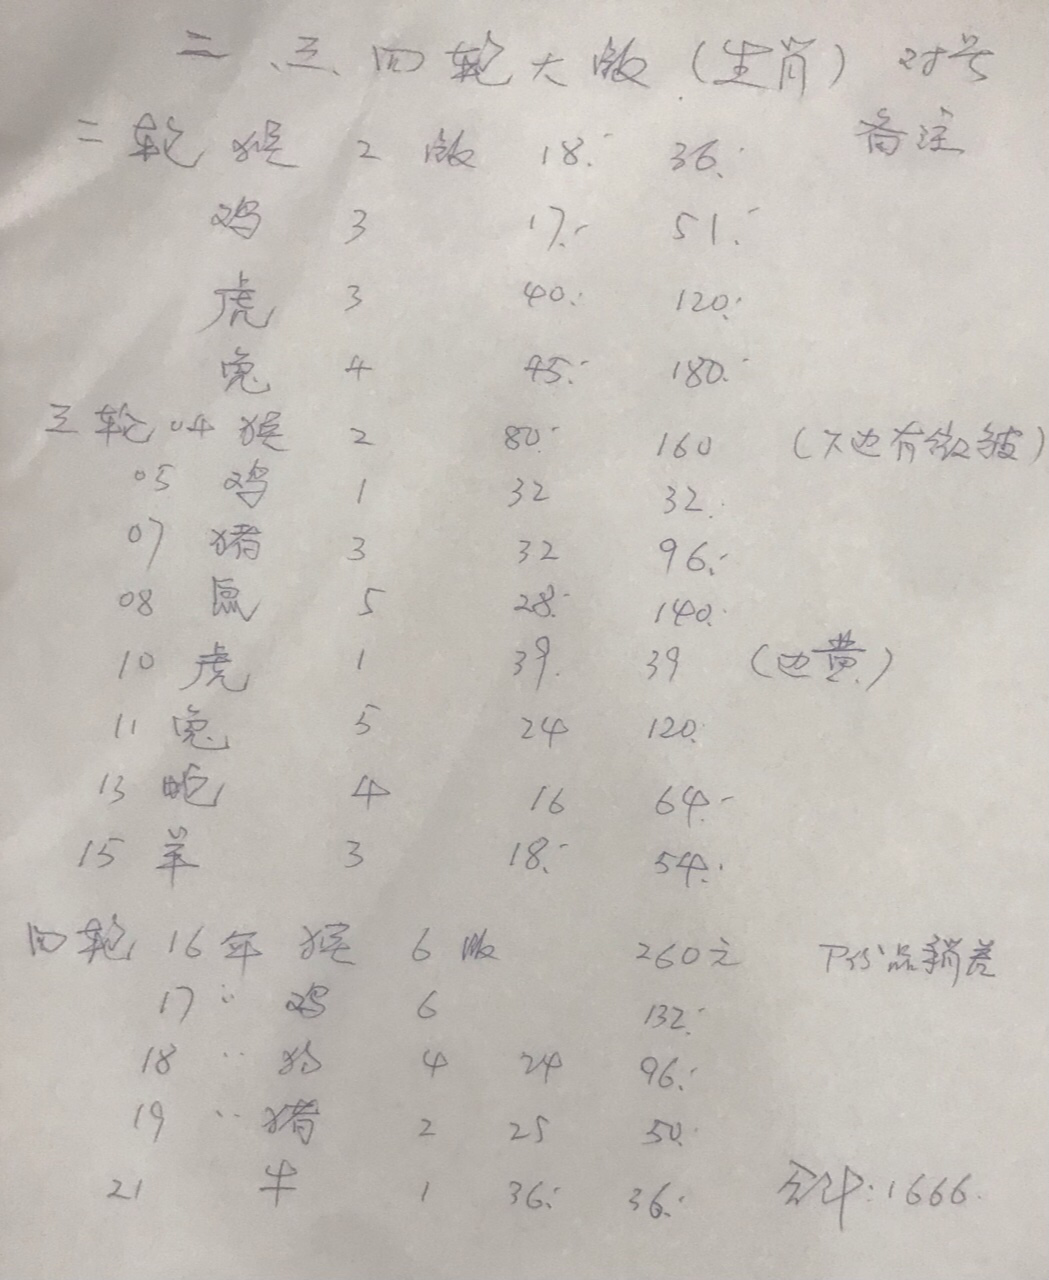 二、三、四轮大版(生肖) 对号
二轮 猴 2 版 18.- 36.- 备注
鸡 3 17.- 51.-
虎 3 40.- 120.-
兔 4 45.- 180.-
三轮 04 猴 2 80.- 160 (下边有微皱)
05 鸡 1 32 32.
07 猪 3 32 96.-
08 鼠 5 28.- 140.
10 虎 1 39. 39 (边黄)
11 兔 5 24 120.
13 蛇 4 16 64.-
15 羊 3 18.- 54.-
四轮 16年 猴 6 版 260元 品稍差
17 〃 鸡 6 132.-
18 〃 狗 4 24 96.-
19 〃 猪 2 25 50.
21 牛 1 36.- 36.- 合计:1666.